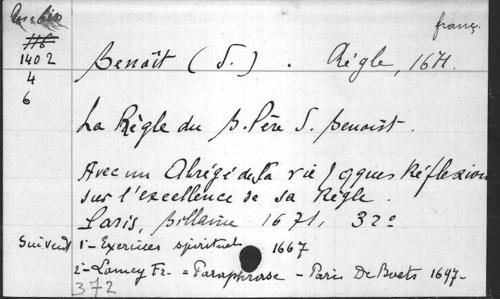 franç.
116
1402
4
6
Benoît (S.) . Règle, 1671.
La Règle du B. Père S. Benoist.
Avec un Abrégé de sa vie & qques Réflexions
sur l'excellence de sa Règle.
Paris, Billaine 1671, 32º
Suivent 1º- Exercices spirituels 1667
2º- Lamey Fr. = Paraphrase - Paris De Bats 1697-
372